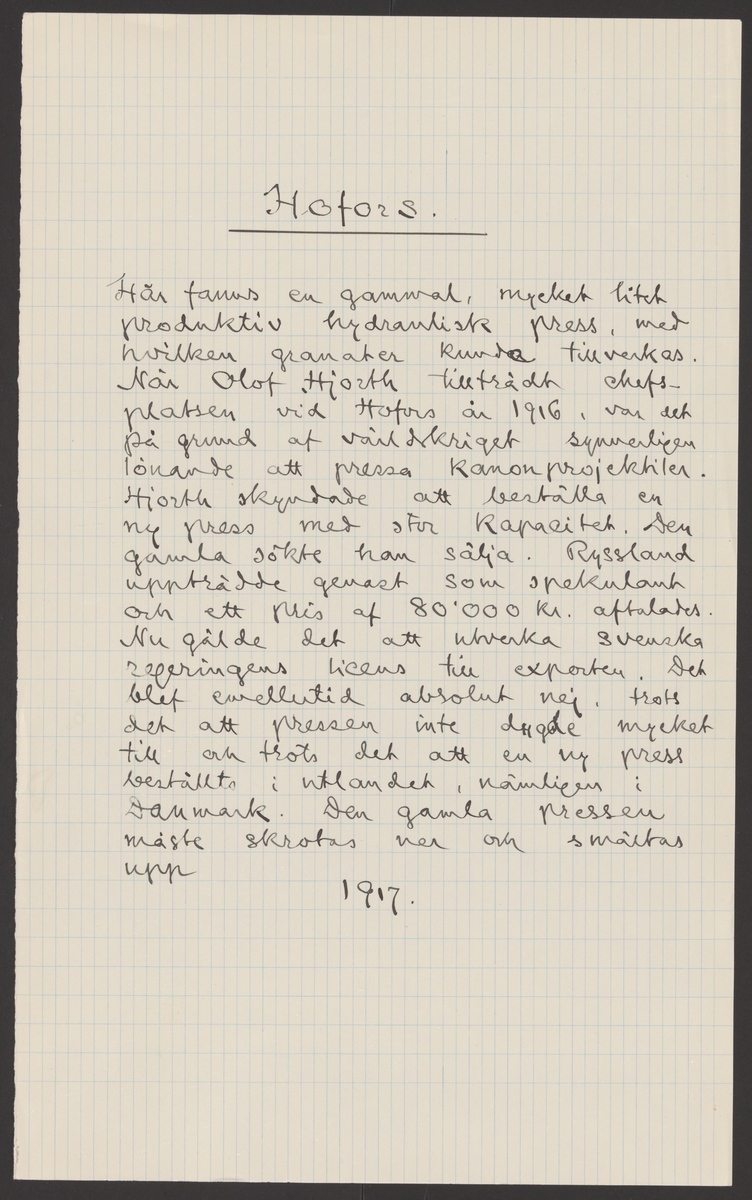 Hofors.
Här fanns en gammal, mycket litet
produktiv hydraulisk press, med
hvilken granater kunde tillverkas.
När Olof Hjorth tillträdt chefs-
platsen vid Hofors år 1916, var det
på grund af världskriget synnerligen
lönande att pressa kanonprojektiler.
Hjorth skyndade att beställa en
ny press med stor kapacitet. Den
gamla sökte han sälja. Ryssland
uppträdde genast som spekulant
och ett pris af 80'000 kr. aftalades.
Nu gälde det att utverka svenska
regeringens licens till exporten. Det
blef emellertid absolut nej, trots
det att pressen inte dugde mycket
till och trots det att en ny press
beställts i utlandet, nämligen i
Danmark. Den gamla pressen
måste skrotas ner och smältas
upp
1917.